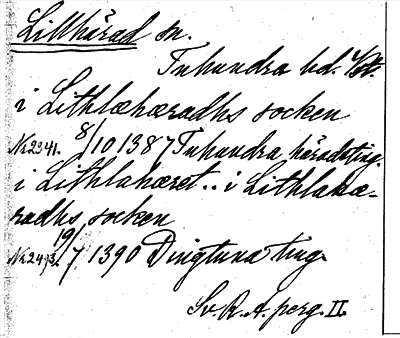 Lillhärad sn.
Tuhundra hd.
i Lithlæhæradhs socken
Nr 2341. 8/10 1387 Tuhundra häradsting.
i Lithlahæret.. i Lithlahæ-
radhs socken
Nr. 2493. 19/7 1390 Dingtuna ting.
Sv. R. A. perg. II.